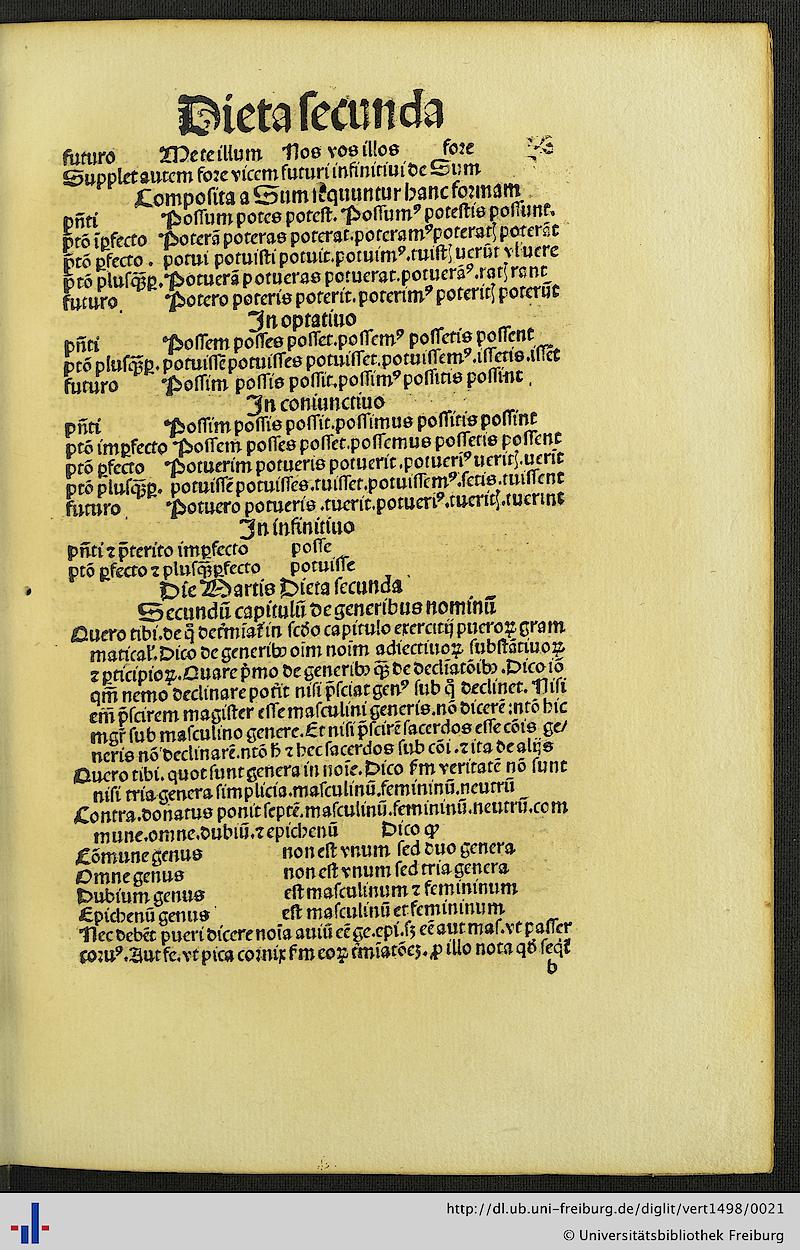 Dieta secunda
futuro Me te illum Nos vos illos fore
Supplet autem fore vicem futuri infinitiui de Sum
Composita a Sum sequuntur hanc formam
pñti Possum potes potest. Possumꝰ potestis possunt.
p̄tō īp̱fecto Poterā poteras poterat. poteramꝰ poteratꝭ poterāt
p̄tō p̱fecto. potui potuisti potuit. potuimꝰ. tuistꝭ uerūt vl̓ uere
p̄tō plusq̄p̱. Potuerā potueras potuerat. potuerāꝰ. ratꝭ rant
futuro. Potero poteris poterit. poterimꝰ poteritꝭ poterūt
In optatiuo
pñti Possem posses posset. possemꝰ possetis possent
p̄tō plusq̄p̱. potuissē potuisses potuisset. potuissemꝰ. issetis. issēt
futuro Possim possis possit. possimꝰ possitis possint.
In coniunctiuo
pñti Possim possis possit. possimus possitis possint
p̄tō imp̱fecto Possem posses posset. possemus possetis possent
p̄tō p̱fecto Potuerim potueris potuerit. potueriꝰ ueritꝭ. uerīt
p̄tō plusq̄p̱. potuissē potuisses. tuisset. potuissemꝰ. setis. tuissent
futuro. Potuero potueris. tuerit. potueriꝰ. tueritꝭ. tuerint
In infinitiuo
pñti ⁊ p̄terito imp̱fecto posse
p̄tō p̱fecto ⁊ plusq̄p̱fecto potuisse
Die Martis Dieta secunda
Secundū capitulū de generibus nominū
Quero tibi. de q̄ determīat̄ in scd̄o capitulo exercitij pueroꝝ gram
matical̓. Dico de generibꝰ oīm noīm adiectiuoꝝ substātiuoꝝ
⁊ p̱ticipioꝝ. Quare p̄mo de generibꝰ q̄ꝫ de declīatōibꝰ. Dico iō
qm̄ nemo declinare potīt nisi p̄sciat genꝰ sub q̄ declinet. Nisi
em̄ p̄scirem magister esse masculini generis. nō dicerē: ntō hic
mgr̄ sub masculino genere. Et nisi p̄scirē sacerdos esse cōis ge/
neris nō declinarē. ntō h̄ ⁊ hec sacerdos sub cōi. ⁊ ita de alijs
Quero tibi. quot sunt genera in noīe. Dico ẜm veritatē nō sunt
nisi tria genera simplicia. masculinū. femininū. neutrū
Contra. donatus ponit septē. masculinū. femininū. neutrū. com
mune. omne. dubiū. ⁊ epichenū Dico ꝙ
Cōmune genus non est vnum sed duo genera
Omne genus non est vnum sed tria genera
Dubium genus est masculinum ⁊ femininum
Epichenū genus est masculinū et femininum
Nec debēt pueri dicere noīa auiū eē ge. epi. sꝫ eē aut mas. vt passer
coruꝰ. Aut fe. vt pica cornix ẜm eoꝝ t̄mīatōeꝫ. ꝓ illo nota qd̄ seqt̄
b
http://dl.ub.uni-freiburg.de/diglit/vert1498/0021
© Universitätsbibliothek Freiburg